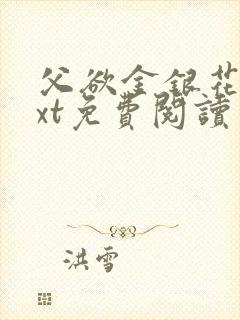 父欲金銀花
xt免費閱讀
洪雪